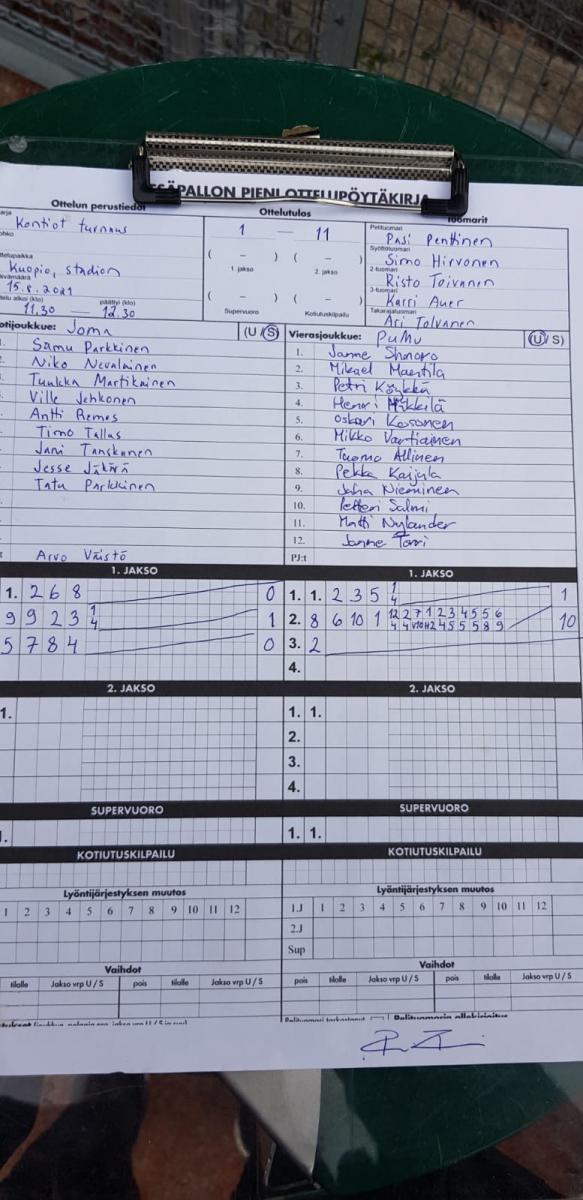 SÄPALLON PIENI OTTELUPÖYTÄKIRJA
Ottelun perustiedot
Ottelutulos
Tuomarit
Kontiot turnaus
1 — 11
Pelituomari
Pasi Penttinen
Syöttötuomari
Simo Hirvonen
2-tuomari
Risto Toivanen
3-tuomari
Karri Auer
Takarajatuomari
Ari Tolvanen
( – ) ( – )
1. jakso 2. jakso
( – ) ( – )
Supervuoro Kotiutuskilpailu
Kuopio, stadion
15.8.2021
päättyi (klo)
11.30 — 12.30
otijoukkue: Joma (U/S)
Samu Parkkinen
Niko Nevalainen
Tuukka Martikainen
Ville Jehkonen
Antti Remes
Timo Tallus
Jani Tanskanen
Jesse
Tatu Parkkinen
Arvo Väistö
Vierasjoukkue: PuMu (U/S)
1. Janne
2. Mikael
3. Petri
4. Henri Mikkilä
5. Oskari Kosonen
6. Mikko Vartiainen
7. Tuomo Allinen
8. Pekka Kaijala
9. Juha Nieminen
10. Petteri Salmi
11. Matti Nylander
12. Janne
PJ:t
1. JAKSO
1. 2 6 8 0
9 9 2 3 1 4 1
5 7 8 4 0
1. JAKSO
1. 1. 2 3 5 1 4 1
2. 8 6 10 1 12 2 7 1 2 3 4 5 5 6 10
3. 2
4.
2. JAKSO
1.
2. JAKSO
1. 1.
2.
3.
4.
SUPERVUORO
SUPERVUORO
1. 1.
KOTIUTUSKILPAILU
KOTIUTUSKILPAILU
Lyöntijärjestyksen muutos
1 2 3 4 5 6 7 8 9 10 11 12
Lyöntijärjestyksen muutos
1.J 1 2 3 4 5 6 7 8 9 10 11 12
2.J
Sup
Vaihdot
tilalle Jakso vrp U / S pois tilalle Jakso vrp U / S
Vaihdot
pois tilalle Jakso vrp U / S pois tilalle Jakso vrp U / S